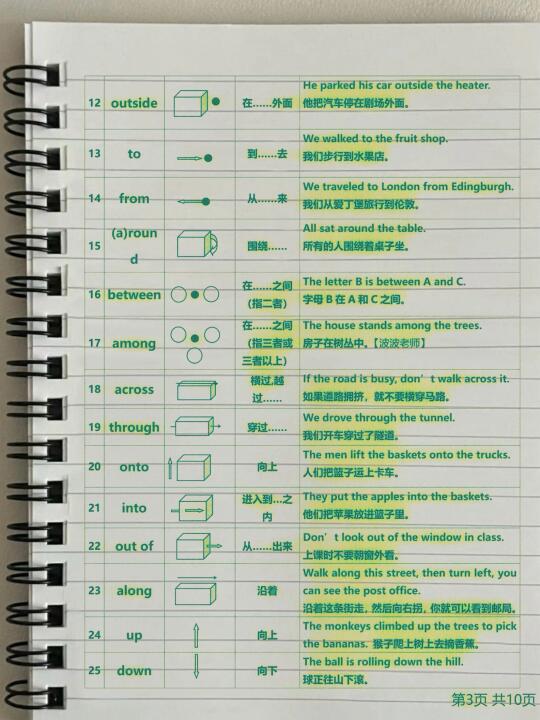 He parked his car outside the heater.
12 outside 在……外面 他把汽车停在剧场外面。
We walked to the fruit shop.
13 to 到……去 我们步行到水果店。
We traveled to London from Edingburgh.
14 from 从……来 我们从爱丁堡旅行到伦敦。
(a)roun All sat around the table.
15 d 围绕…… 所有的人围绕着桌子坐。
在……之间 The letter B is between A and C.
16 between (指二者) 字母 B 在 A 和 C 之间。
在……之间 The house stands among the trees.
17 among (指三者或 房子在树丛中。【波波老师】
三者以上)
横过,越 If the road is busy, don't walk across it.
18 across 过…… 如果道路拥挤，就不要横穿马路。
We drove through the tunnel.
19 through 穿过…… 我们开车穿过了隧道。
The men lift the baskets onto the trucks.
20 onto 向上 人们把篮子运上卡车。
进入到…之 They put the apples into the baskets.
21 into 内 他们把苹果放进篮子里。
Don't look out of the window in class.
22 out of 从……出来 上课时不要朝窗外看。
Walk along this street, then turn left, you
23 along 沿着 can see the post office.
沿着这条街走，然后向右拐，你就可以看到邮局。
The monkeys climbed up the trees to pick
24 up 向上 the bananas. 猴子爬上树上去摘香蕉。
The ball is rolling down the hill.
25 down 向下 球正往山下滚。
第3页 共10页